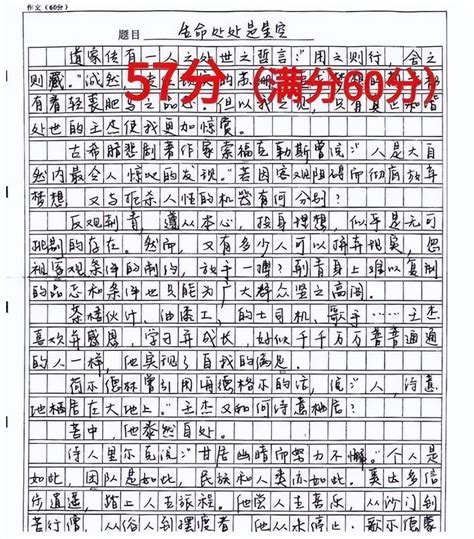 作文（60分）
题目 生命处处是星空
道家传有一人之处世之哲言：“用之则行，舍之
则藏。”诚然，
57分（满分60分）
有着轻裘肥马之
处世的王杰使我更加惊赞。
古希腊悲剧著作家索福克勒斯曾说：“人是大自
然内最令人惊叹的发现。”若因客观阻碍而彻底放弃
梦想，又与扼杀人性的机器有何分别？
反观刺青，遵从本心，投身理想，似乎是无可
挑剔的存在。然而，又有多少人可以摒弃现实，忽
视客观条件的制约，放手一搏？刺青身上难以复制
的品态和条件也只能为广大群众竖之高阁。
茶楼伙计、油漆工、的士司机、歌手……王杰
喜欢并感恩，学习并成长，好似千千万万普普通通
的人一样，他实现了自我的满足。
荷尔德林曾引用海德格尔的话，说：“人，诗意
地栖居在大地上。”王杰又如何诗意栖居？
苦中，他泰然自处。
诗人里尔克说：“甘居幽暗而努力不懈。”个人是
如此，团队是如此，民族和人类亦如此。莫达多信
步逍遥，踏上人生旅程。他尝人生苦乐，从沙门到
苦行僧，从俗人到摆渡者，他从未停止。歌尔德蒙